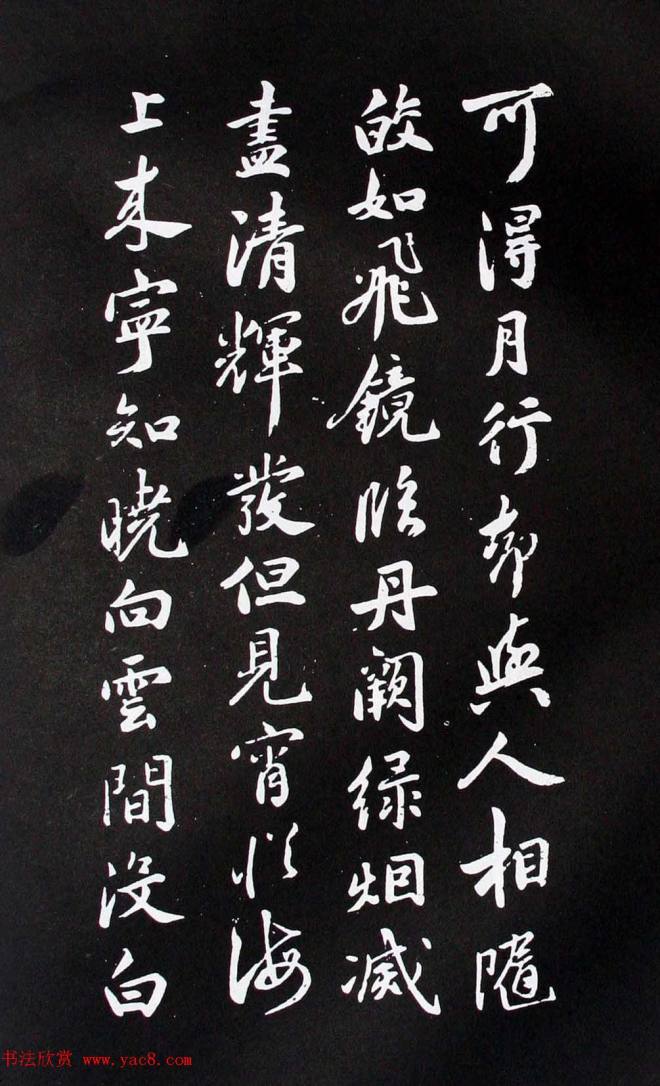 可得月行却與人相隨
皎如飛鏡臨丹闕绿烟滅
盡清輝發但見宵從海
上來寧知曉向雲間沒白
书法欣赏 www.yac8.com